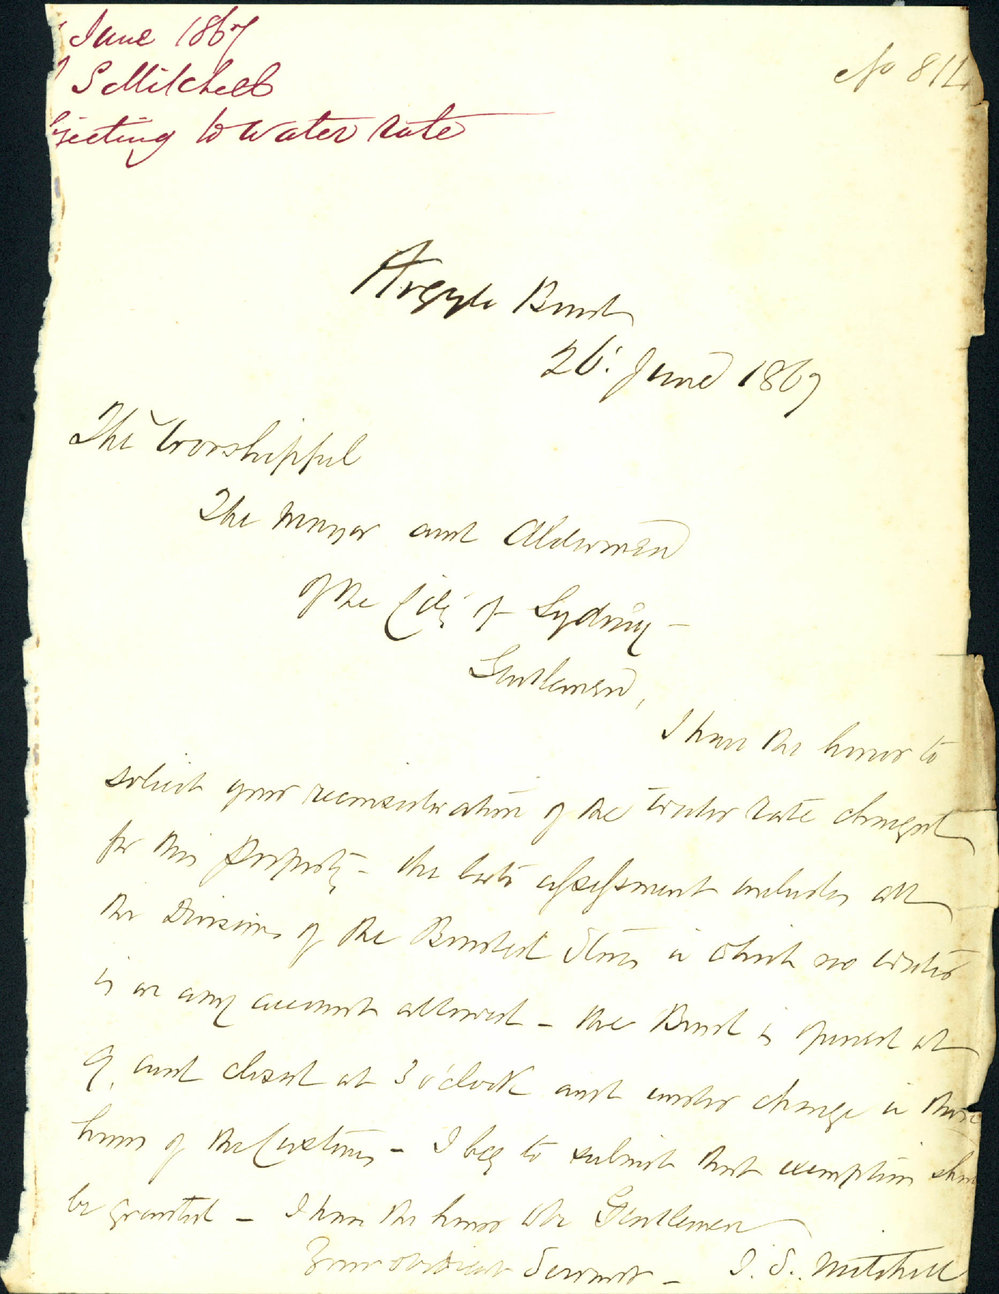 June 1867
S Mitchell
jecting to water rate
No 814
Argyle Bond
26. June 1867
The Worshipful
The Mayor and Aldermen
of the City of Sydney -
Gentlemen,
I have the honor to
solicit your reconsideration of the Water rate charged
for this property - the late assessment includes all
the Divisions of the Bonded Stores in which no water
is on any account allowed - the Bond is opened at
9, and closed at 3 o'clock and under charge in those
hours of the Customs - I beg to submit that exemption
be granted - I have the honor to be Gentlemen
Your obedient Servant - J. S. Mitchell